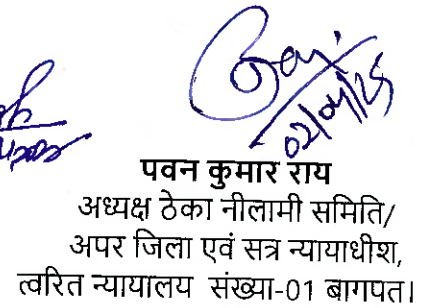 02/04/25
पवन कुमार राय
अध्यक्ष ठेका नीलामी समिति/
अपर जिला एवं सत्र न्यायाधीश,
त्वरित न्यायालय संख्या-01 बागपत।